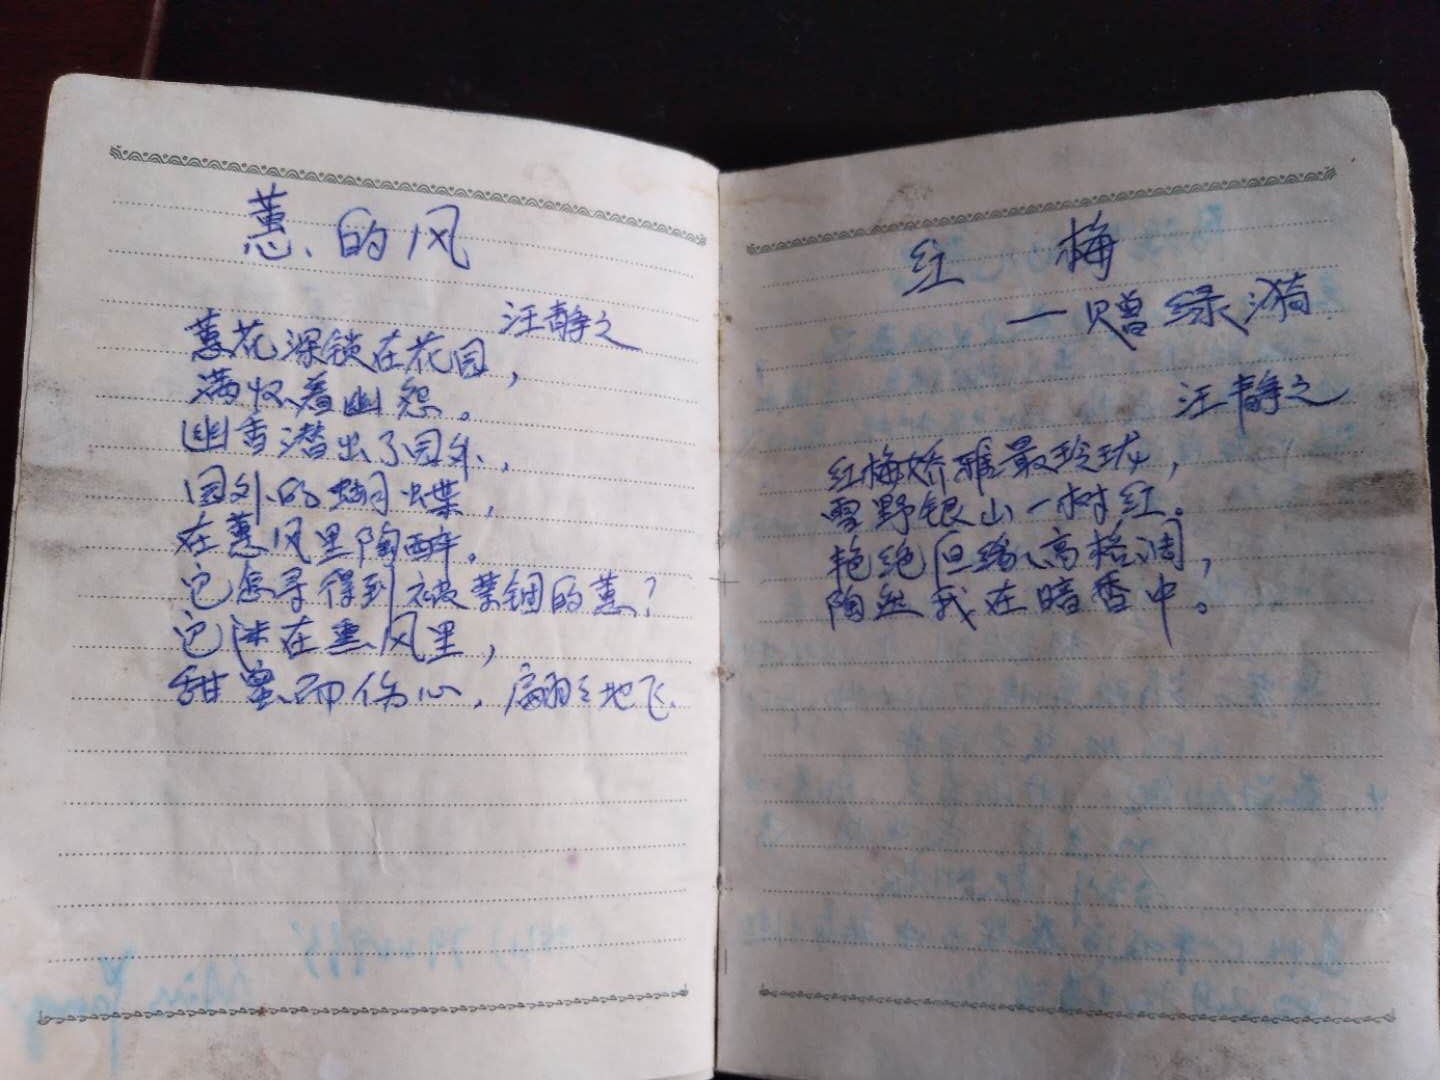 蕙的风
汪静之
蕙花深锁在花园，
满怀着幽怨。
幽香潜出了园外，
园外的蝴蝶，
在蕙风里陶醉。
它怎寻得到被禁锢的蕙？
它迷在熏风里，
甜蜜而伤心，翩々地飞。
红梅
一赠绿漪
汪静之
红梅娇雅最玲珑，
雪野银山一树红。
艳绝但端高格调，
陶然我在暗香中。